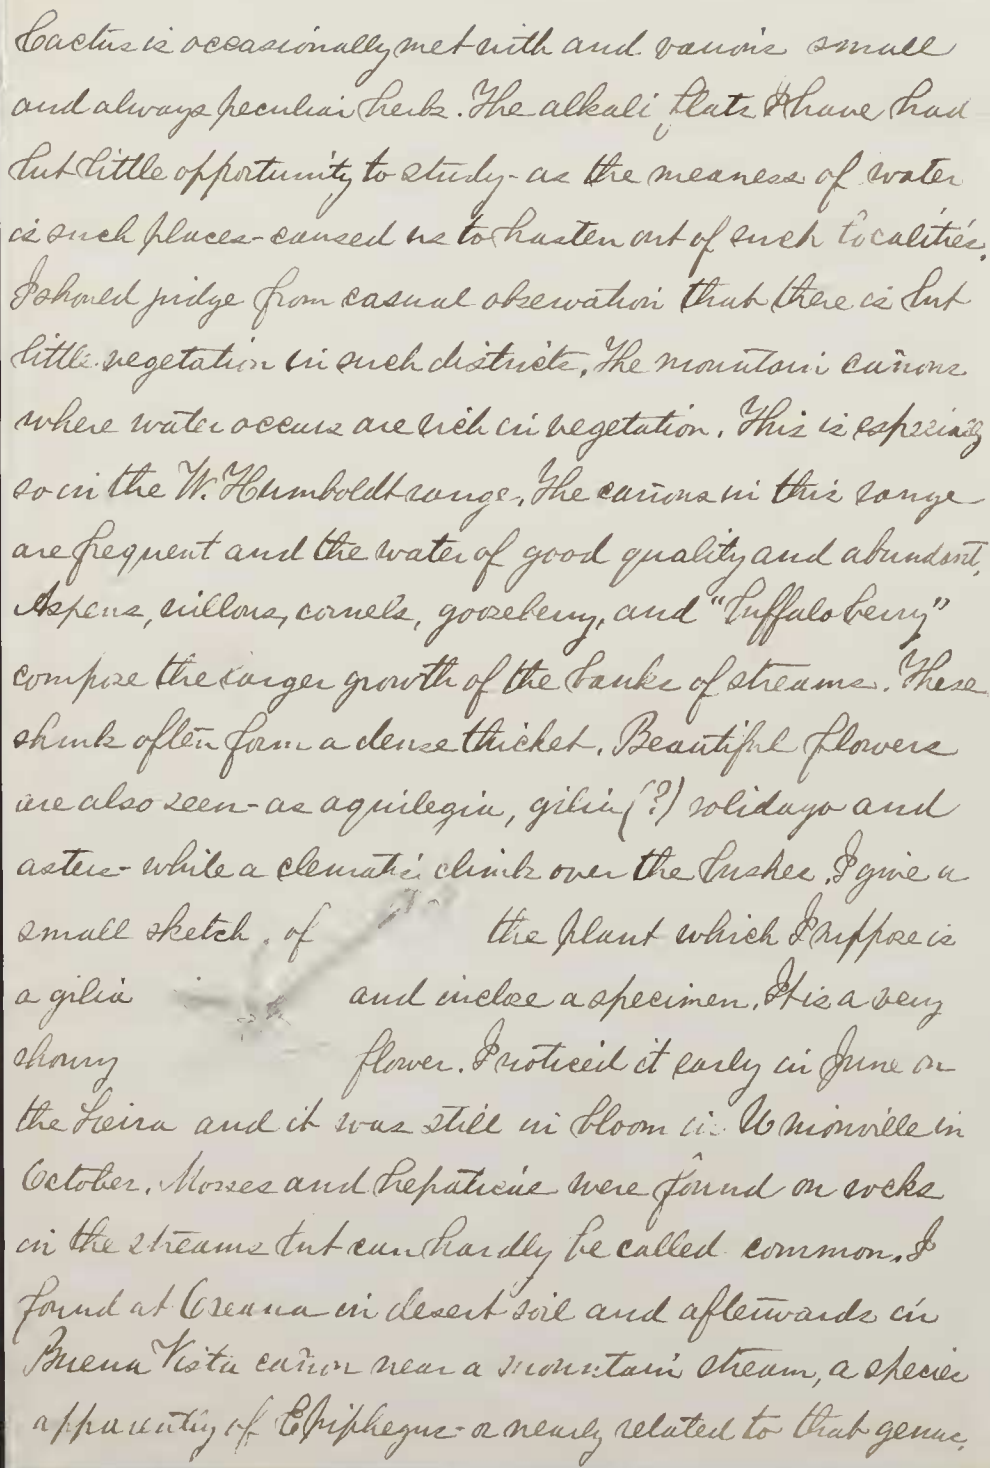 Cactus is occasionally met with and various small
and always peculiar herbs. The alkali flats I have had
but little opportunity to study - as the meaness of water
is such places - caused us to hasten out of such localities.
I should judge from casual observation that there is but
little vegetation in such districts. The mountain cañons
where water occurs are rich in vegetation. This is especially
so in the W. Humboldt range. The cañons in this range
are frequent and the water of good quality and abundant.
Aspens, willows, cornels, gooseberry, and "buffalo berry"
compose the larger growth of the banks of streams. These
shrubs often form a dense thicket. Beautiful flowers
are also seen - as aquilegia, gilia (?) solidago and
asters - while a clematis climbs over the bushes. I give a
small sketch of the plant which I suppose is
a gilia and inclose a specimen. It is a very
showy flower. I noticed it early in June on
the Sierra and it was still in bloom in Unionville in
October. Mosses and hepaticae were found on rocks
in the streams but can hardly be called common. I
found at Oreana in desert soil and afterwards in
Buena Vista cañon near a mountain stream, a species
apparently of Epiphegus - or nearly related to that genus.